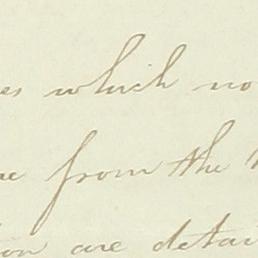 es which no
from the
are detai